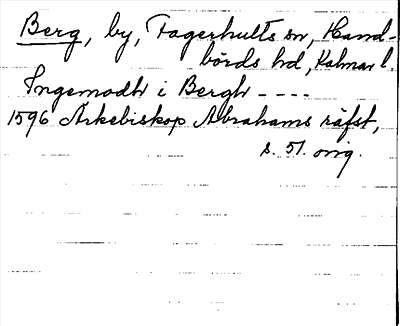 Berg, by, Fagerhults sn, Hand-
börds hd, Kalmar l.
Ingemodh i Bergh ----
1596 Ärkebiskop Abrahams räfst,
s. 51. orig.